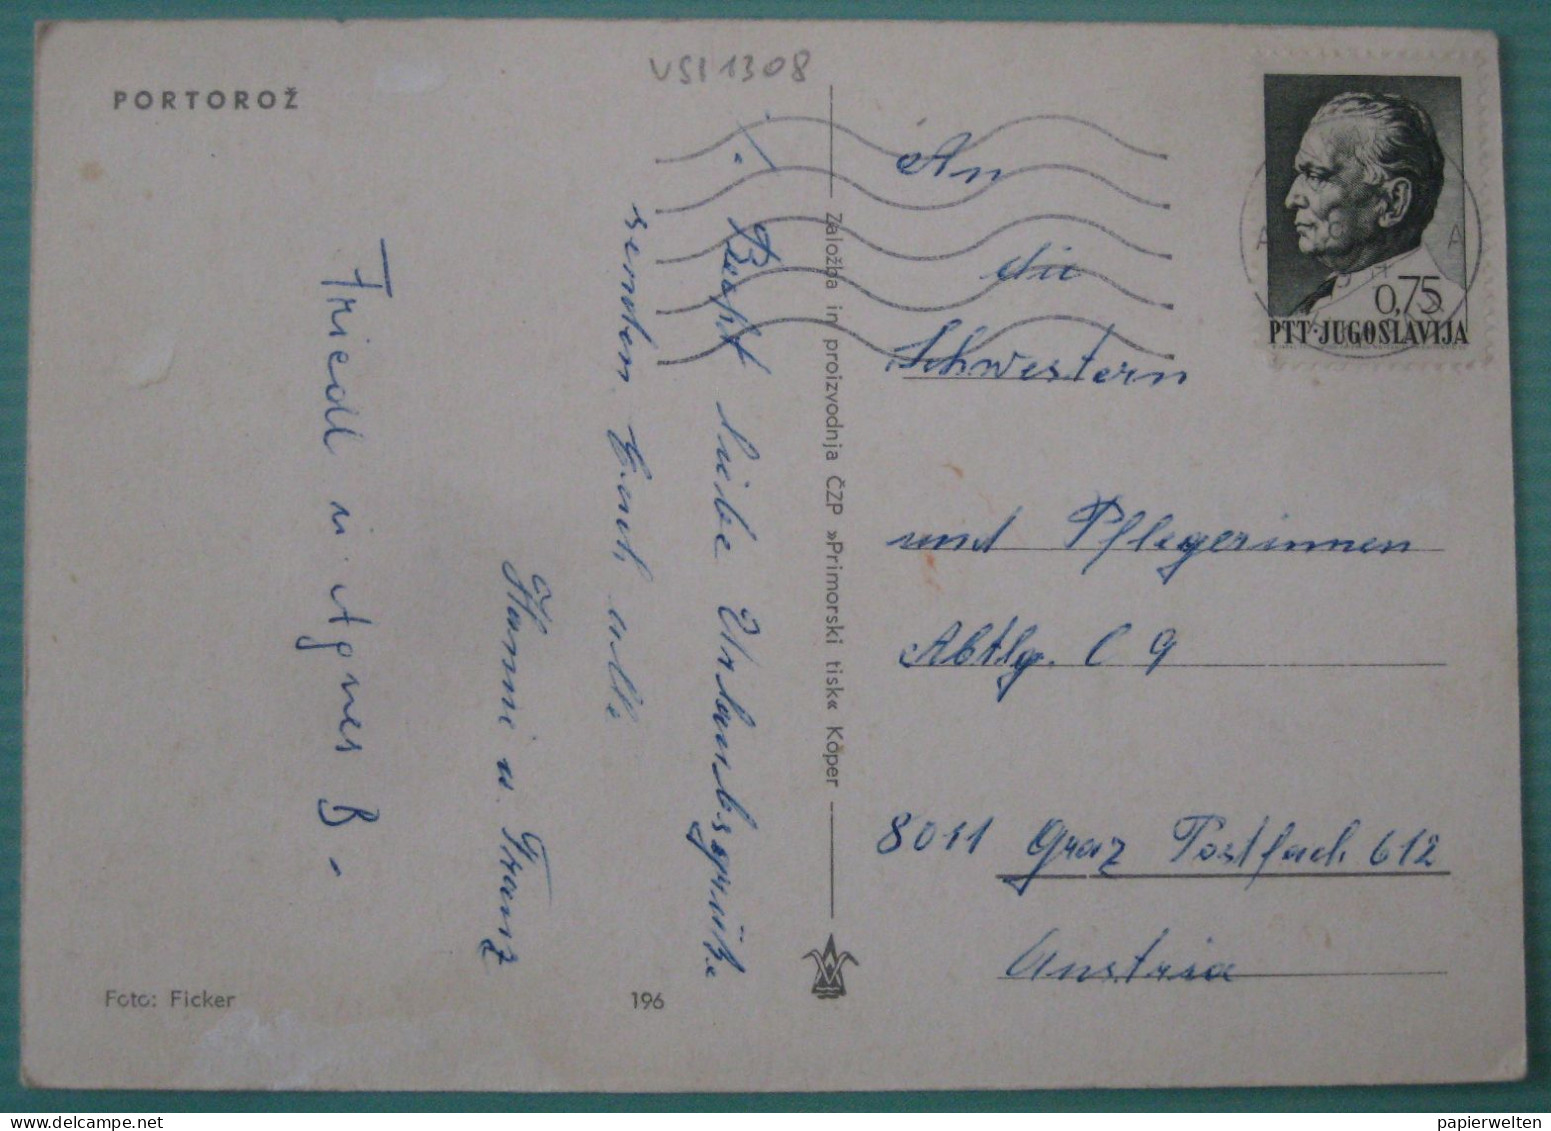 VSI 1308
PORTOROŽ
Recht liebe Urlaubsgrüße
senden Euch alle
Hanni u. Franz
Friedl u Agnes B.
Foto: Ficker
196
Založba in proizvodnja ČZP »Primorski tisk« Koper
An
die
Schwestern
und Pflegerinnen
Abtlg. C 9
8011 Graz Postfach 612
Austria
0,75
PTT·JUGOSLAVIJA
papierwelten